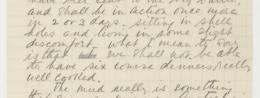 and shall be in action once more
in 2 or 3 days - sitting in shell
holes and living in some slight
discomfort. What I mean to say
is that we shall not be able
to have six course dinners, really
well cooked.
The mud really is something